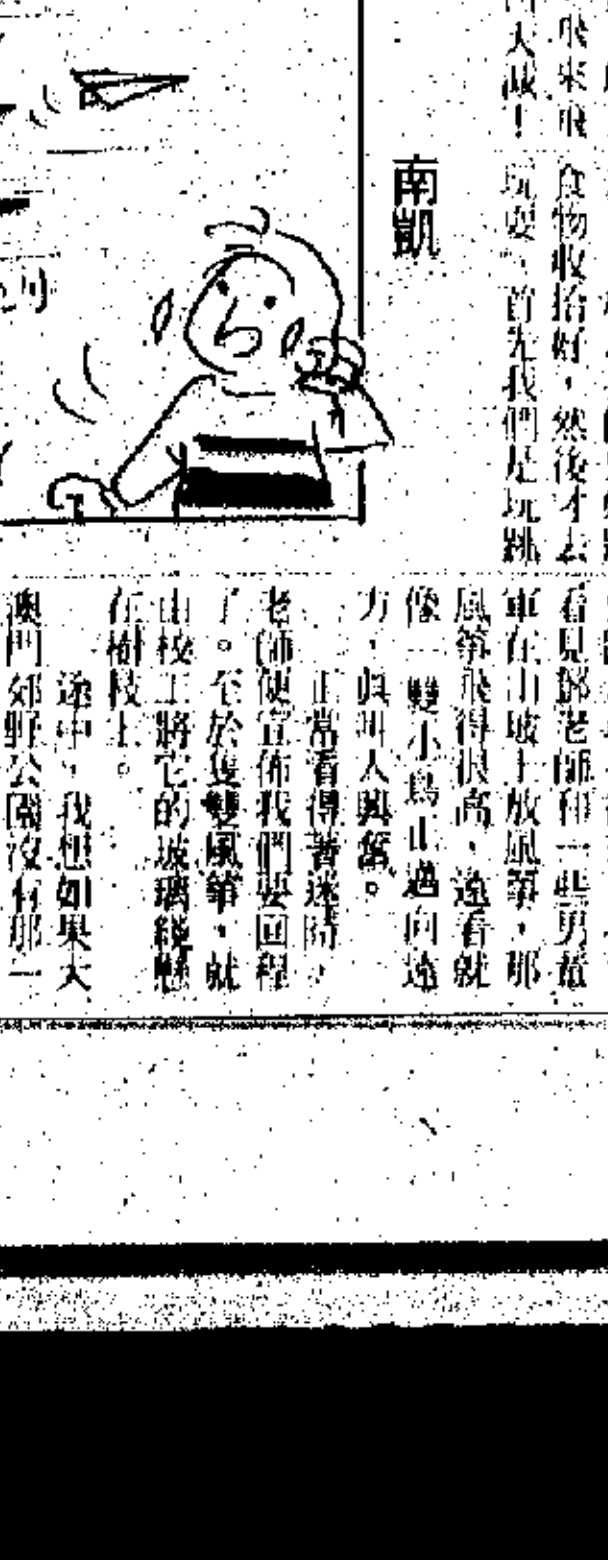 飛來飛
大減！
食物收拾好，然後才去
玩耍。首先我們是玩跳
南凱
看見鄧老師和一些男童
軍在山坡上放風箏，那
風箏飛得很高，遠看就
像一雙小鳥山邁向遠
方，眞叫人興奮。
正當看得著迷時，
老師便宣佈我們要回程
了。至於隻雙風箏，就
由校工將它的玻璃繩懸
在樹枝上。
途中，我想如果大
澳門郊野公園沒有那一